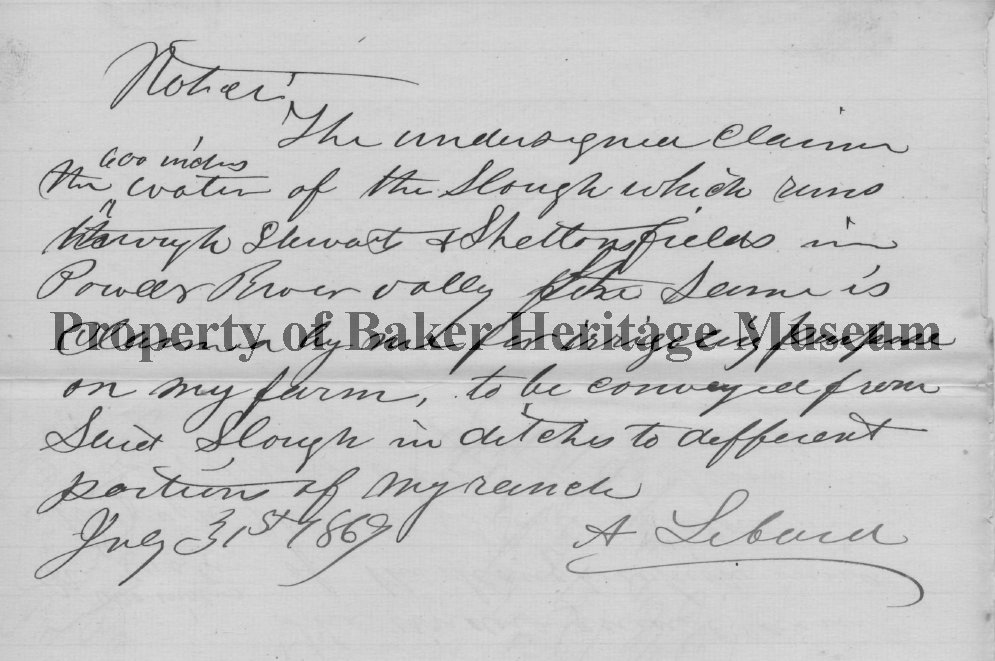 Notice
The undersigned claims
600 inches
the water of the Slough which runs
through Stewart & Sheltons fields in
Powder River vally the same is
Property of Baker Heritage Museum
claimed by me for irrigating purpose
on my farm, to be conveyed from
Said Slough in ditches to different
portions of my ranch
July 31st 1869
A